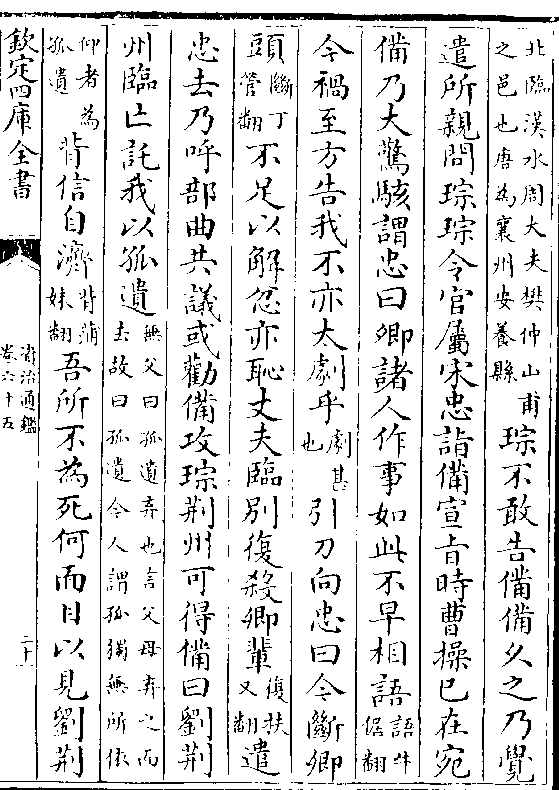 北臨漢水周大夫樊仲山甫
之邑也唐為襄州安養縣
琮不敢告備備久之乃覺
遣所親問琮琮令官屬宋忠詣備宣旨時曹操已在宛
備乃大驚駭謂忠曰卿諸人作事如此不早相語
語牛
倨翻
今禍至方告我不亦太劇乎
劇甚
也
引刀向忠曰今斷卿
頭
斷丁
管翻
不足以解忿亦恥丈夫臨别復殺卿輩
復扶
又翻
遣
忠去乃呼部曲共議或勸備攻琮荆州可得備曰劉荆
州臨亡託我以孤遺
無父曰孤遺弃也言父母弃之而
去故曰孤遺今人謂孤獨無所依
仰者為
孤遺
背信自濟
背蒲
妹翻
吾所不為死何面目以見劉荆
欽定四庫全書
資治通鑑
卷六十五
二十